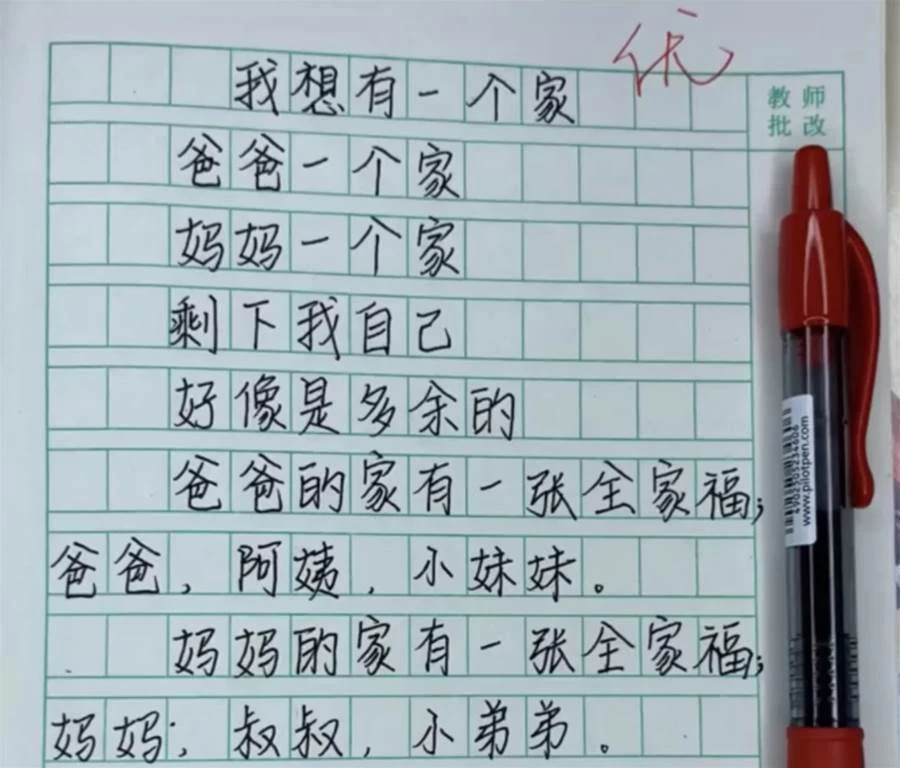 优
我想有一个家
教师
批改
爸爸一个家
妈妈一个家
剩下我自己
好像是多余的
爸爸的家有一张全家福;
爸爸,阿姨,小妹妹。
妈妈的家有一张全家福;
妈妈;,叔叔,小弟弟。
4902505234606
www.pilotpen.com